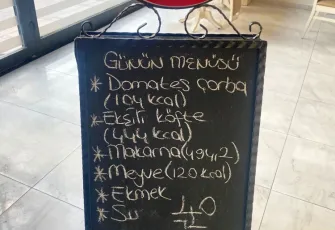 GÜNÜN MENÜSÜ
* Domates çorba
(104 kcal)
* Ekşili köfte
(444 kcal)
* Makarna (494,2)
* Meyve (120 kcal)
* Ekmek
* Su
40